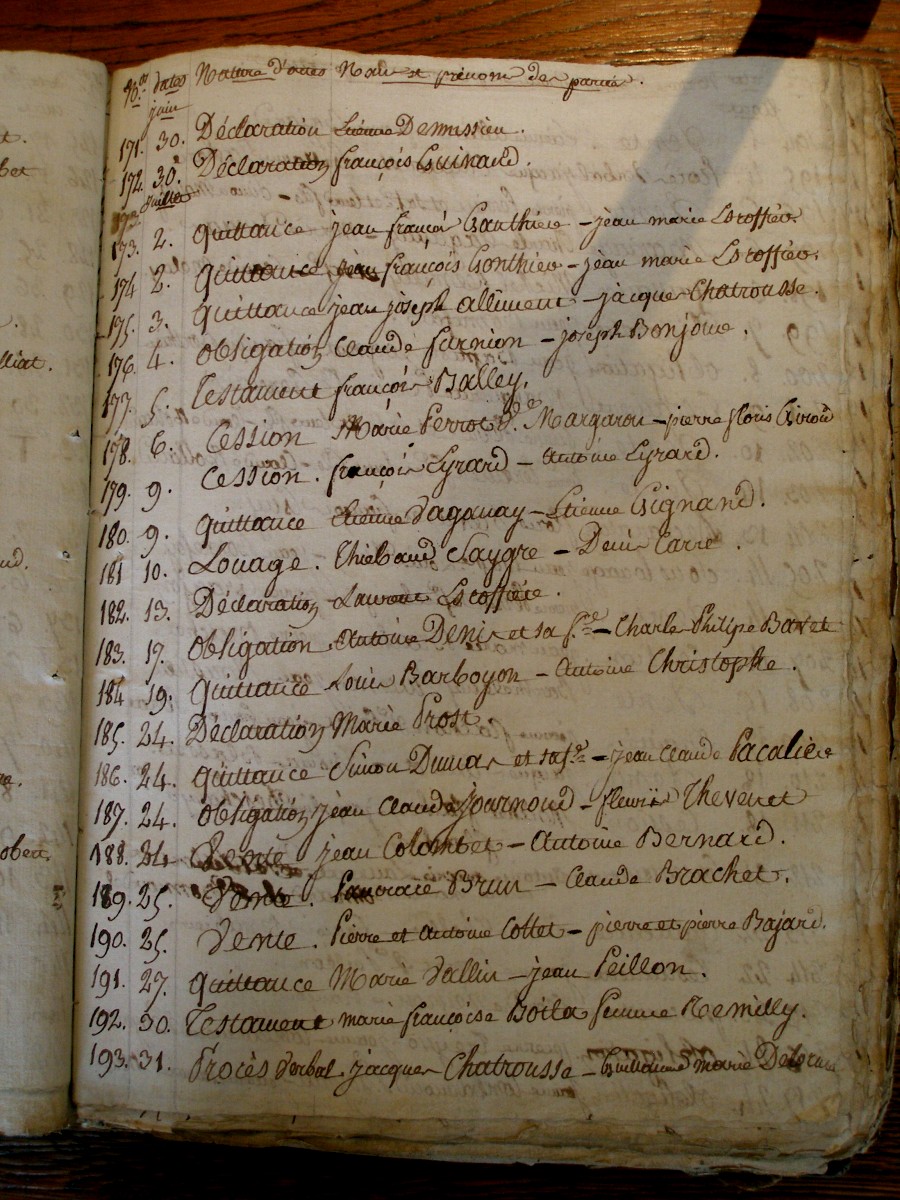 t.
bet
lliat.
ud.
obert.
N.os dates Nature d'actes Nom et prénom des parties.
juin
171. 30. Déclaration Etienne Demussieu.
172. 30. Déclaration françois Guinand.
Juillet
173. 2. quittance jean françois Gonthier - jean marie Lecoffier
174 2. quittance jean françois Gonthier - jean marie Lecoffier.
175. 3. quittance jean joseph alliment - jacques Chatrousse.
176. 4. obligation Claude furnion - joseph Bonjour.
177. 5. Testament françois Balley.
178. 6. Cession Marie Perrot V.e Margaron - pierre floris Giroud
179. 9. Cession. françois Lyrard - antoine Lyrard.
180. 9. quittance Etienne Daganay - Etienne Guignard.
181 10. Louage. Thiebaud Saygre - Denis Carre.
182. 13. Déclaration Laurent Lecoffière.
183. 17. obligation antoine Denis et sa f.e - Charle Philipe Bavet
184 19. quittance Louis Barboyon - antoine Christophe.
185. 24. Déclaration Marie Prost.
186. 24. quittance Simon Dumas et sa f.e - jean Claude Pacaliere
187. 24. obligation jean Claude Journoud - fleurie Thevenet
188. 24 Vente jean Colombet - Antoine Bernard.
189. 25. Vente. Pancrace Brun - Claude Brachet.
190. 25. Vente. Pierre et antoine Cottet - pierre et pierre Bajard.
191. 27. quittance Marie Vallin - jean Peillon.
192. 30. Testament marie françoise Boila femme Remilly.
193. 31. Procès verbal jacques Chatrousse - Guillaume marie